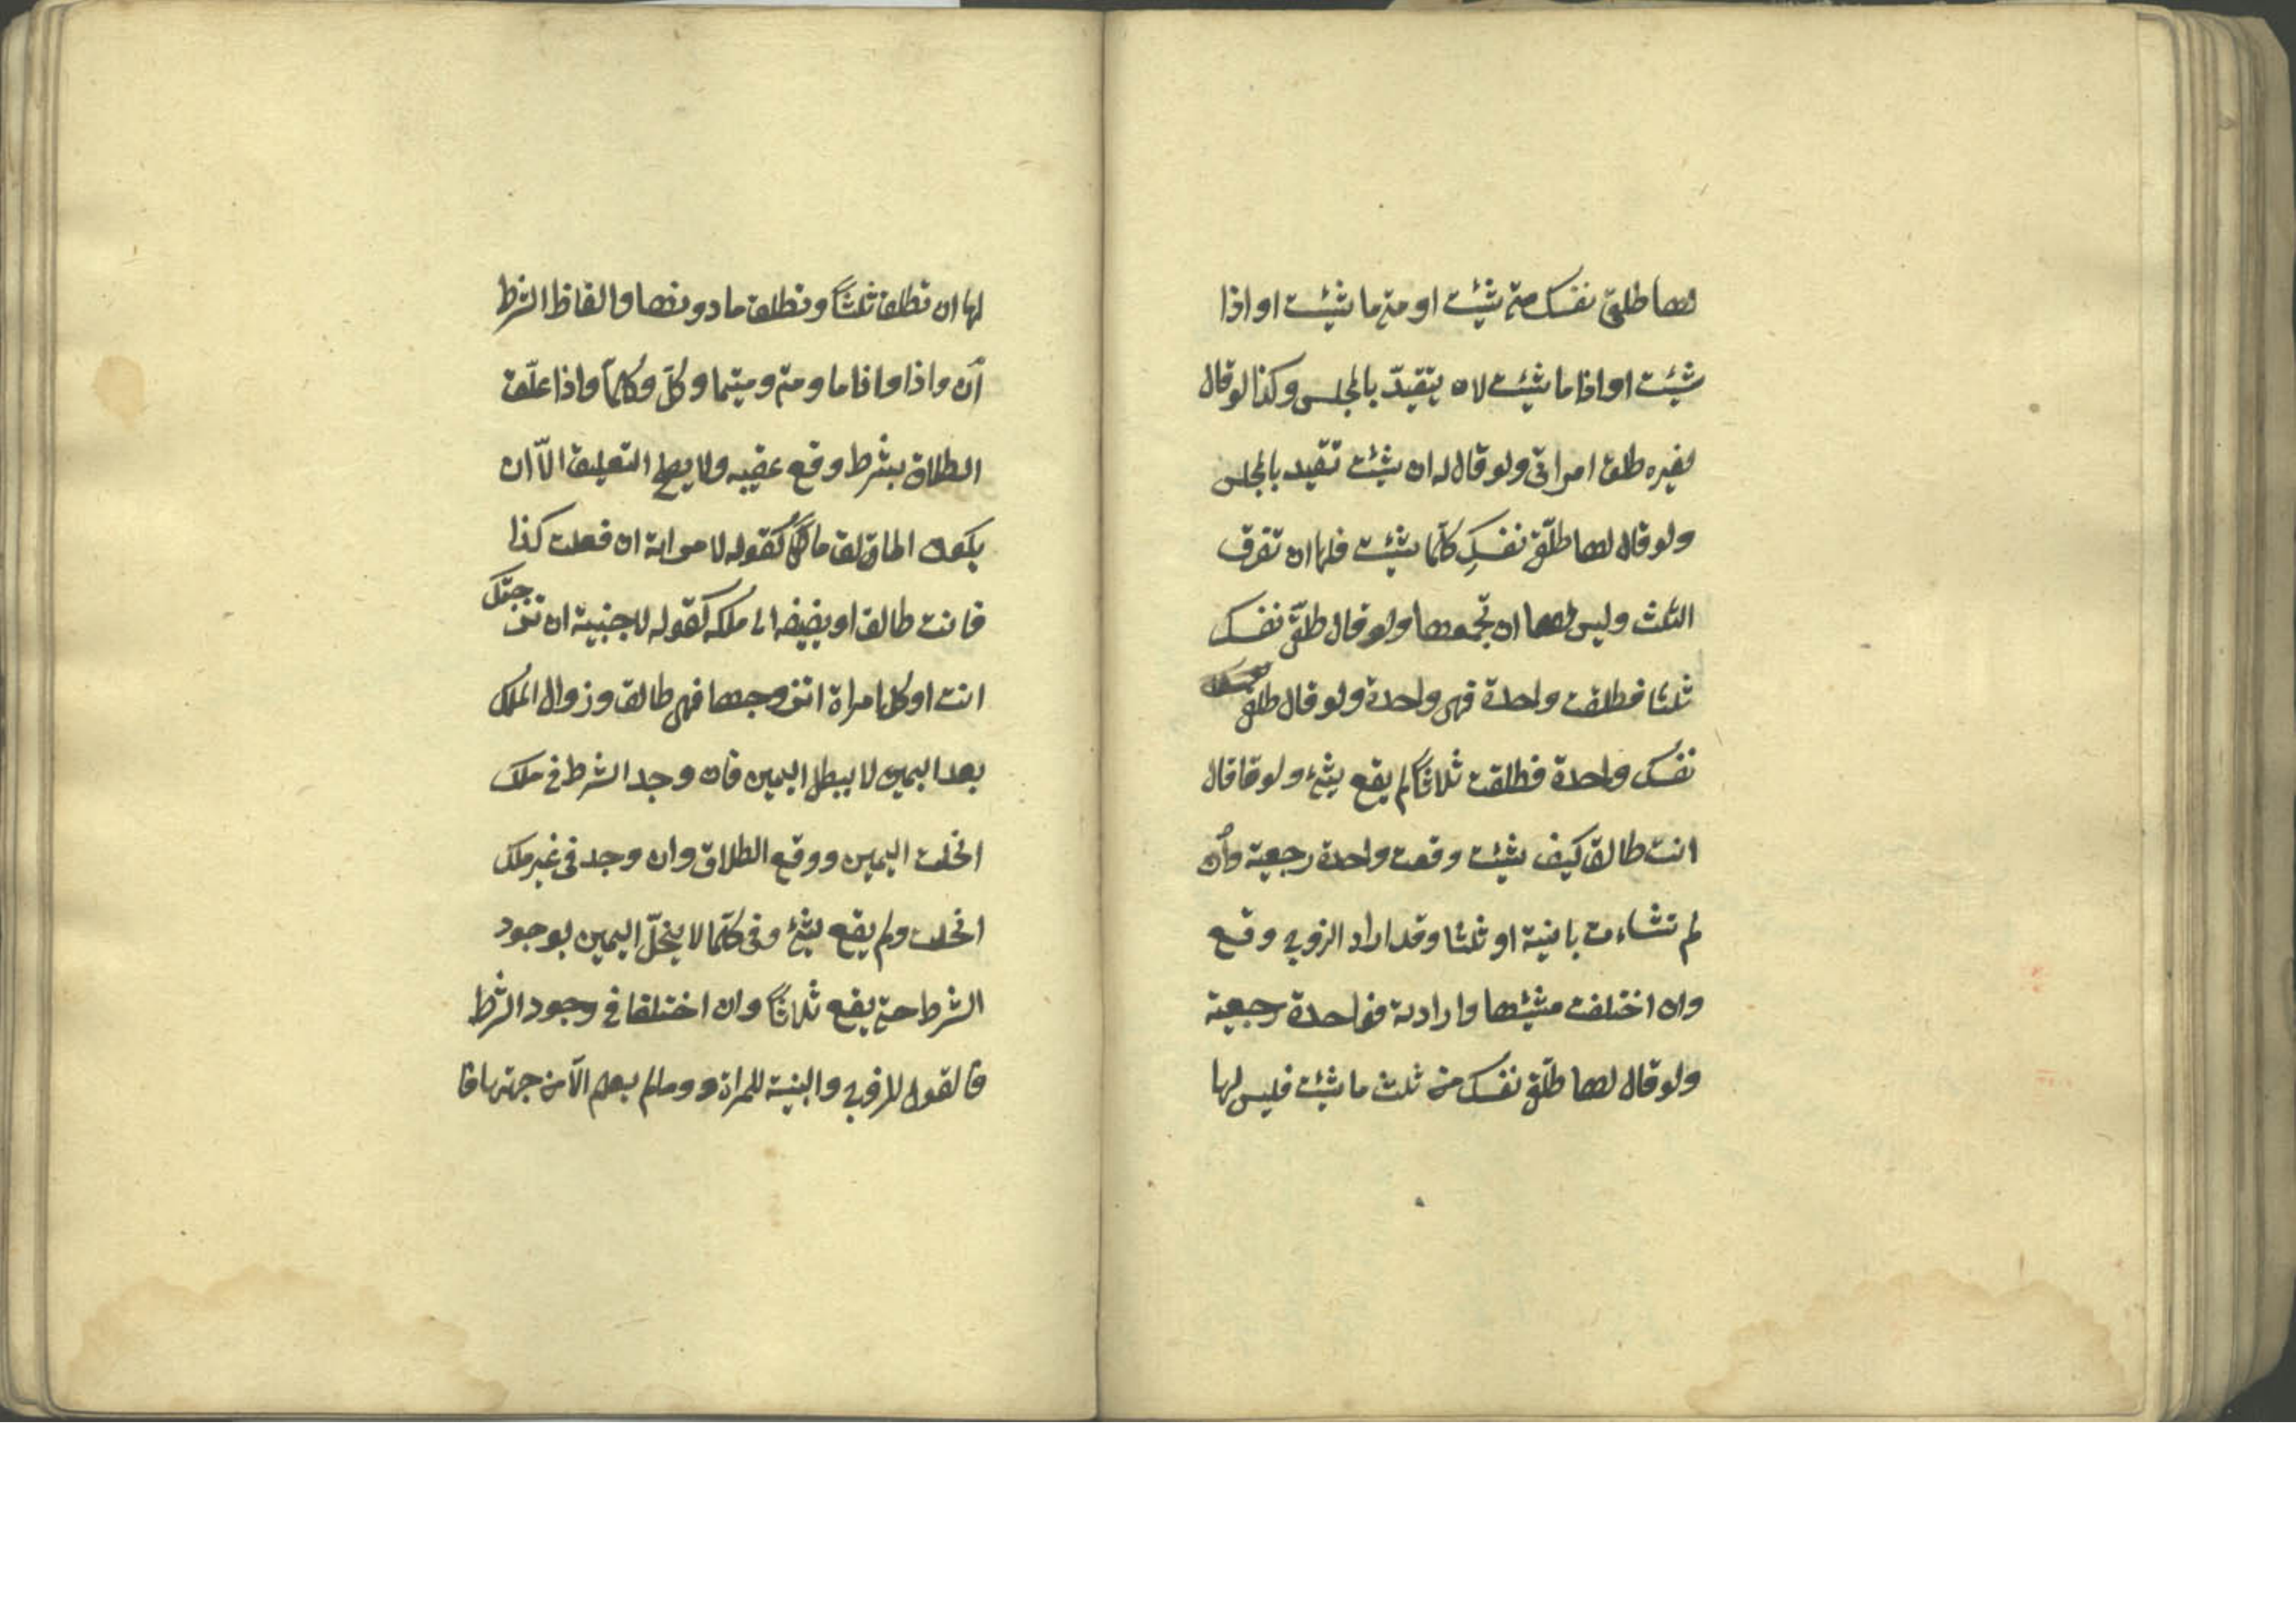 لها طلقى نفسك متى شئت او متى ما شئت او اذا
شئت او اذا ما شئت لان يتقيدّ بالمجلس وكذا لو قال
لغيره طلق امراتى ولو قال له ان شئت تقيد بالمجلس
ولو قال لها طلّقى نفسكِ كلّما شئت فلها ان تفرق
الثلث وليس لها ان تجمعها ولو قال طلقّى نفسك
ثلثا فطلقت واحدة فهى واحدة ولو قال طلقى
نفسك واحدة فطلقت ثلاثًا لم يقع شئ ولو قا قال
انت طالق كيف شئت وقعت واحدة رجعية وأن
لم تشاءت باينية او ثلثا وقد اراد الزوج وقع
وان اختلفت مشيئتها وارادته فواحدة رجعية
ولو قال لها طلّقى نفسك من ثلث ما شئت فليس لها
لها ان تطلق ثلثًا وتطلق ما دونها والفاظ الشرط
أن واذا واذا ما ومتى ومتيما وكلّ وكلمّا واذا علّق
الطلاق بشرط وقع عقيبه ولا يصح التعليق الاّ ان
يكون مالكًا كقوله لامراته ان فعلت كذا
فانت طالق او يضيفه الى ملكه كقوله لاجنبية ان تزوجتك
انت او كل امراة اتزوجها فهى طالق وزوال الملك
بعد اليمين لا يبطل اليمين فان وجد الشرط فى ملك
انحلت اليمين ووقع الطلاق وان وجد فى غير ملك
انحلت ولم يقع شئ وفى كلّما لا ينحلّ اليمين بوجود
الشرط حتى يقع ثلاثًا وان اختلفا فى وجود الشرط
فالقول للزوج والبنية للمراة ووما لم يعلم الاّ من جهتها فا